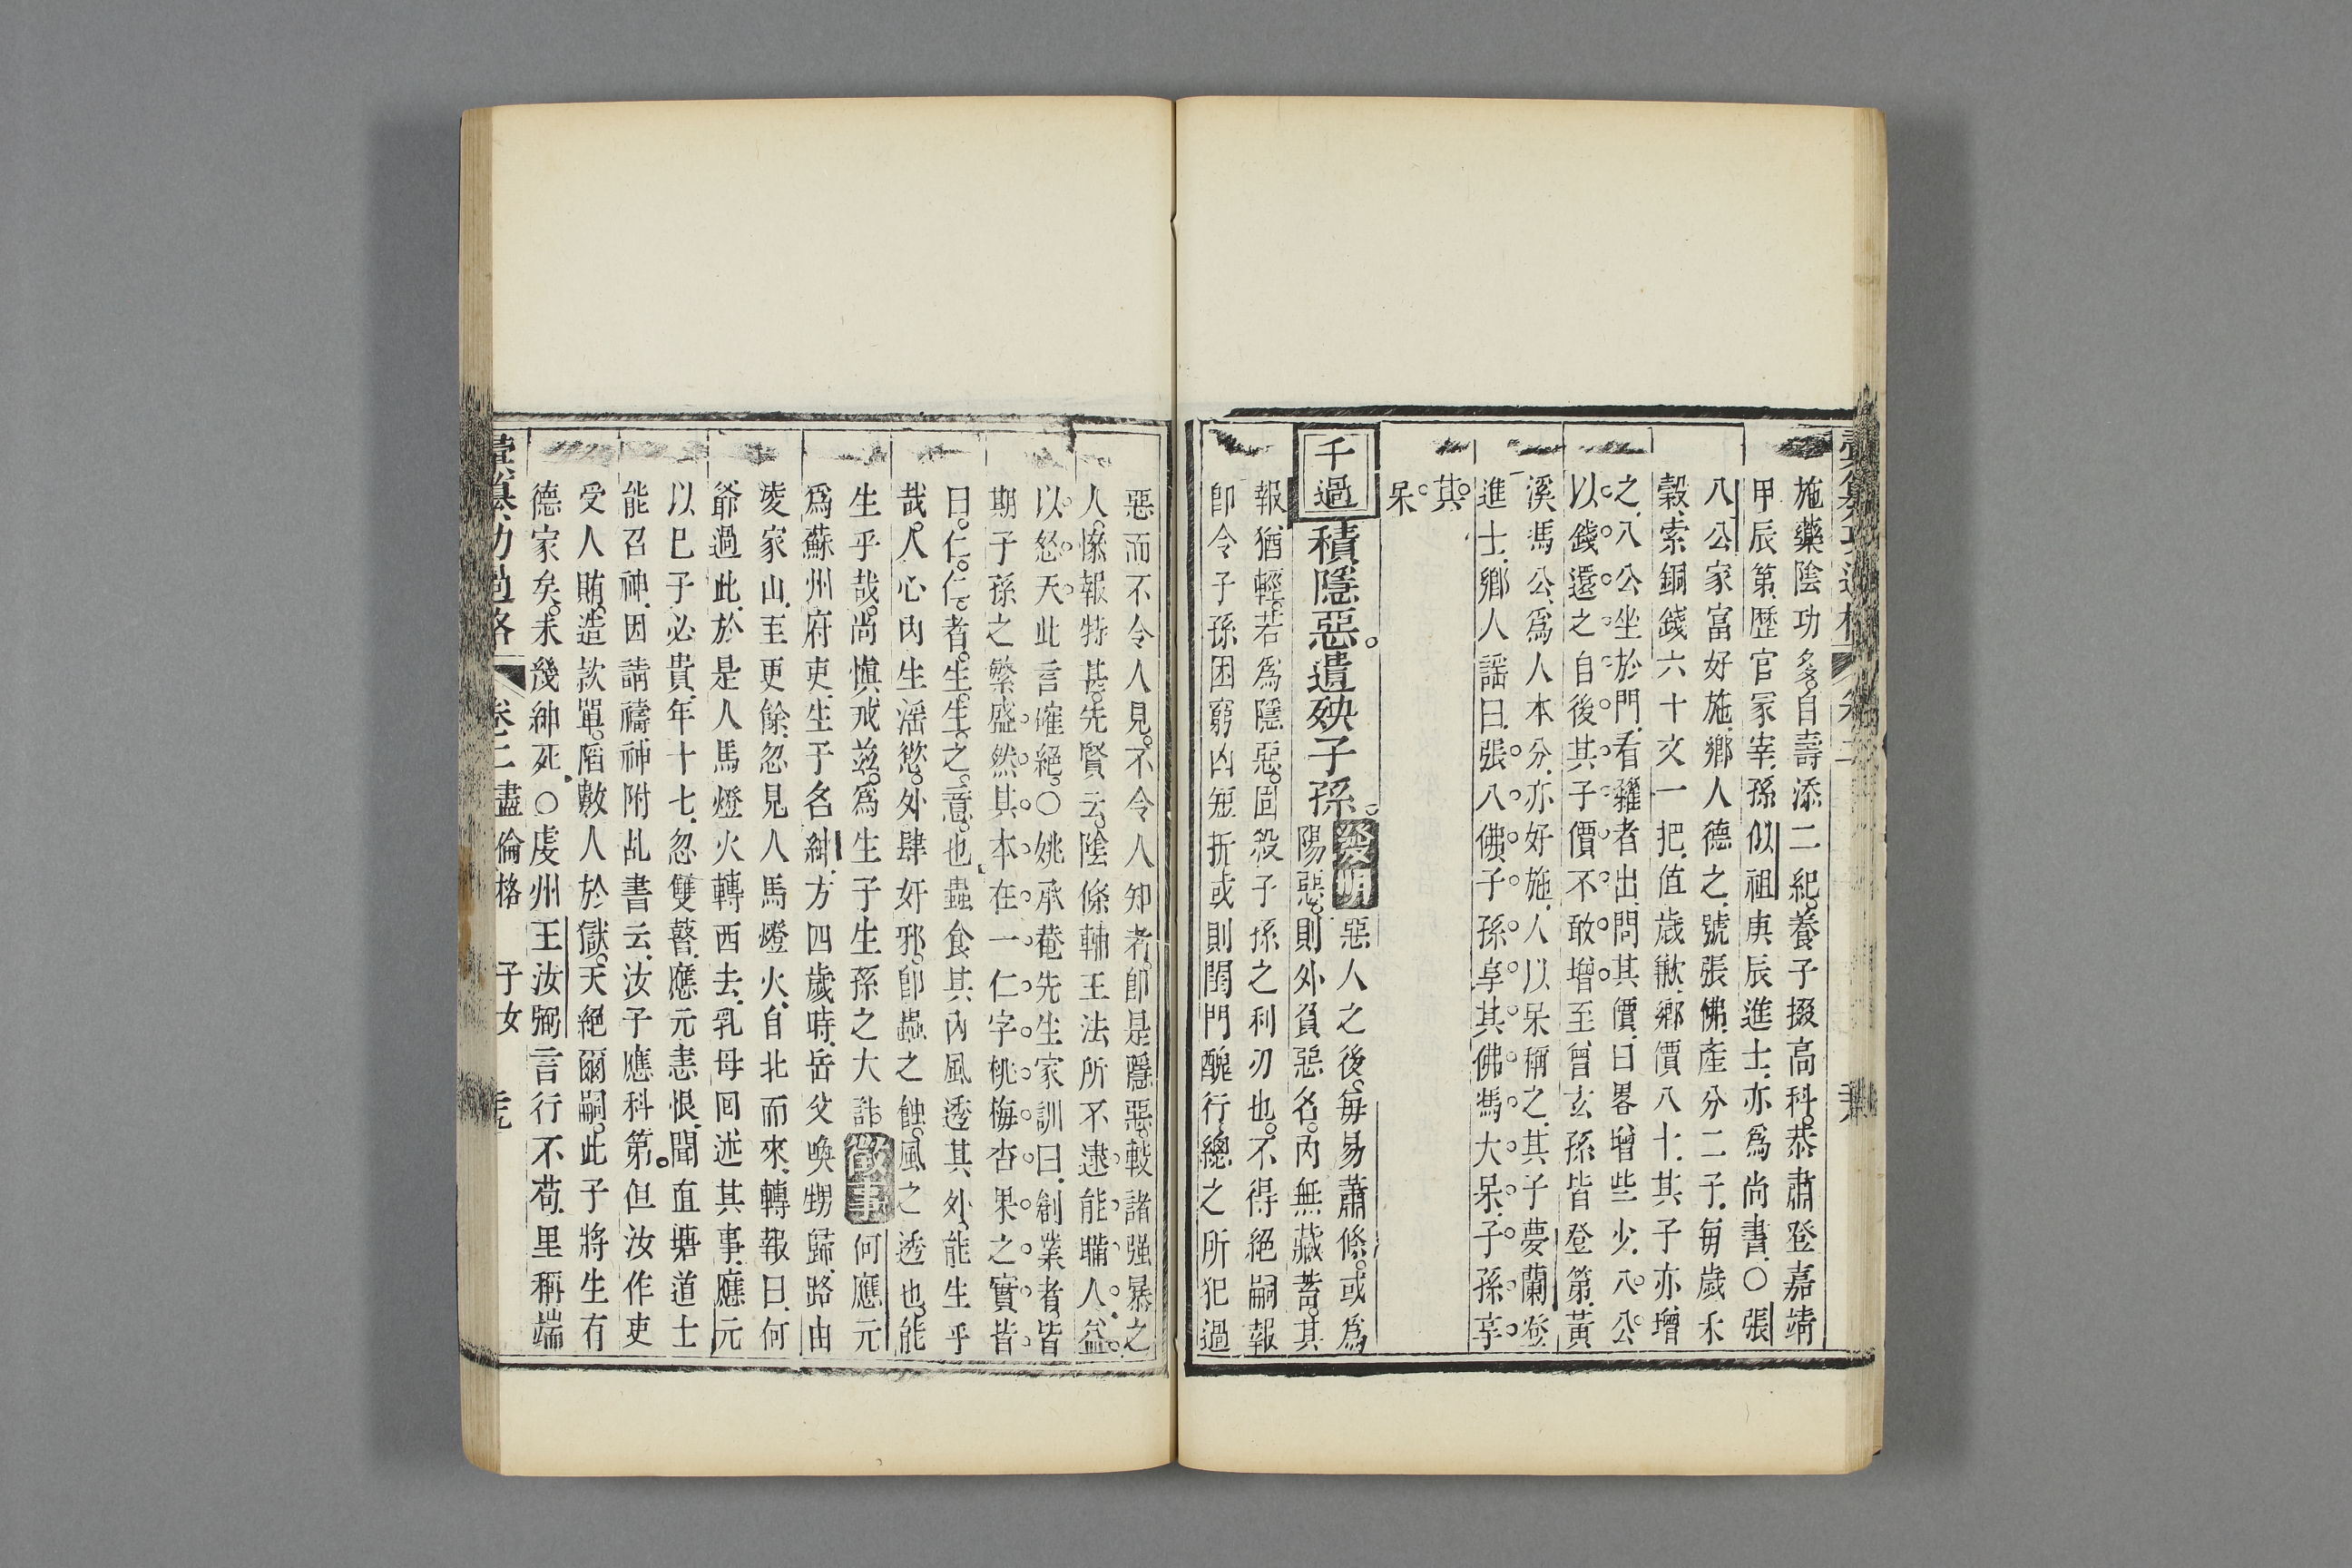 施藥陰功多自壽添二紀養子掇高科恭肅登嘉靖
甲辰第歷官冡宰孫似祖庚辰進士亦爲尚書○張
八公家富好施鄉人德之號張佛產分二子每歲禾
穀索銅錢六十文一把值歲歉鄉價八十其子亦增
之八公坐於門看糴者出問其價曰畧增些少八公
以錢還之自後其子價不敢增至曾玄孫皆登第黃
溪馬公爲人本分亦好施人以呆稱之其子夢蘭登
進士鄉人謡曰張八佛子孫享其佛馮大呆子孫享
其
呆
千過積隱惡遺殃子孫發明惡人之後每易蕭條或爲
陽惡則外負惡名内無藏蓄其
報猶輕若爲隱惡固殺子孫之利刃也不得絕嗣報
卽令子孫困窮凶短折或則閨門醜行總之所犯過
惡而不令人見不令人知者卽是隱惡較諸强暴之
人慘報特甚先賢云陰條輔王法所不逮能瞞人益
以怒天此言確絕○姚承菴先生家訓曰創業者皆
期子孫之繁盛然其本在一仁字桃梅杏果之實皆
曰仁仁者生生之意也蟲食其内風透其外能生乎
哉人心内生滛慾外肆奸邪卽蟲之蝕風之透也能
生乎哉尚愼戒兹爲生子生孫之大計徵事何應元
爲蘇州府吏生子名紳方四歲時岳父喚甥歸路由
凌家山至更餘忽見人馬燈火自北而來轉報曰何
爺過此於是人馬燈火轉西去乳母囘述其事應元
以巳子必貴年十七忽雙瞽應元恚恨聞直塘道士
能召神因請禱神附乩書云汝子應科第但汝作吏
受人賄造款單陷數人於獄天絕爾嗣此子將生有
德家矣未幾紳死○虔州王汝弼言行不苟里稱端
彙纂功過格 卷二盡倫格 子女